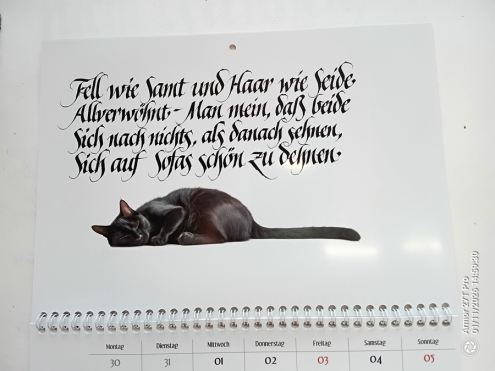 Fell wie Samt und Haar wie Seide.
Allverwöhnt - Man mein, daß beide
Sich nach nichts, als danach sehnen,
Sich auf Sofas schön zu dehnen.
Montag Dienstag Mittwoch Donnerstag Freitag Samstag Sonntag
30 31 01 02 03 04 05